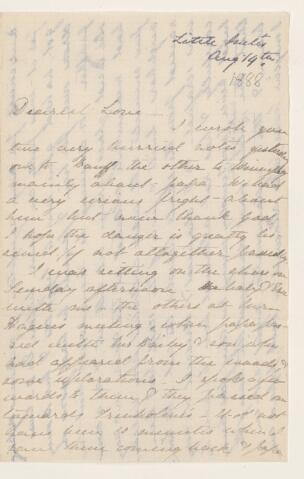 Little Metis
Aug 14th
1888
Dearest Love
I wrote you
two very hurried notes yesterday
one to Banff the other to Winnipeg
mainly about papa. We had
a very serious fright about
him but now thank God
I hope the danger is greatly
if not altogether passed
I was sitting on the shore on
Sunday afternoon baby &
with me - the others at Mr
meeting, when papa
with Mr & you
had appeared from the woods &
some explorations. I spoke
wards to them, & they passed on
towards It
have been 10 minutes when I
saw them coming back, & papa